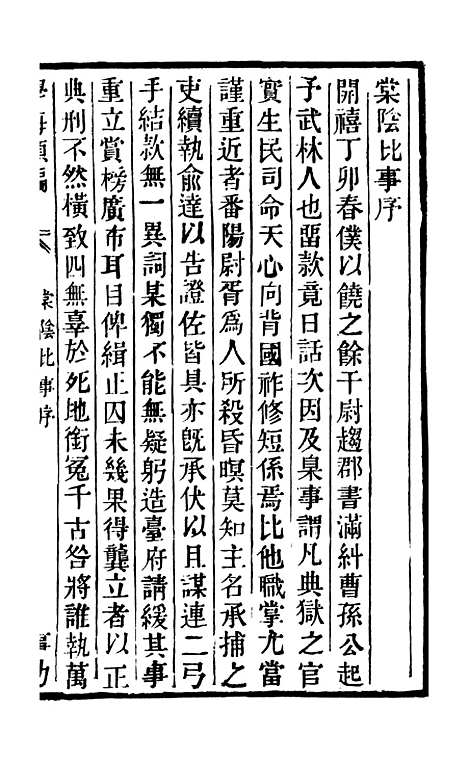 棠陰比事序
開禧丁卯春僕以饒之餘干尉趨郡書滿糾曹孫公起
予武林人也畱款竟日話次因及臬事謂凡典獄之官
實生民司命天心向背國祚修短係焉比他職掌尤當
謹重近者番陽尉胥爲人所殺昏暝莫知主名承捕之
吏續執俞達以告證佐皆具亦旣承伏以且謀連二弓
手結款無一異詞某獨不能無疑躬造臺府請緩其事
重立賞榜廣布耳目俾緝正囚未幾果得龔立者以正
典刑不然橫致四無辜於死地銜冤千古咎將誰執萬
學海類編 棠陰比事序